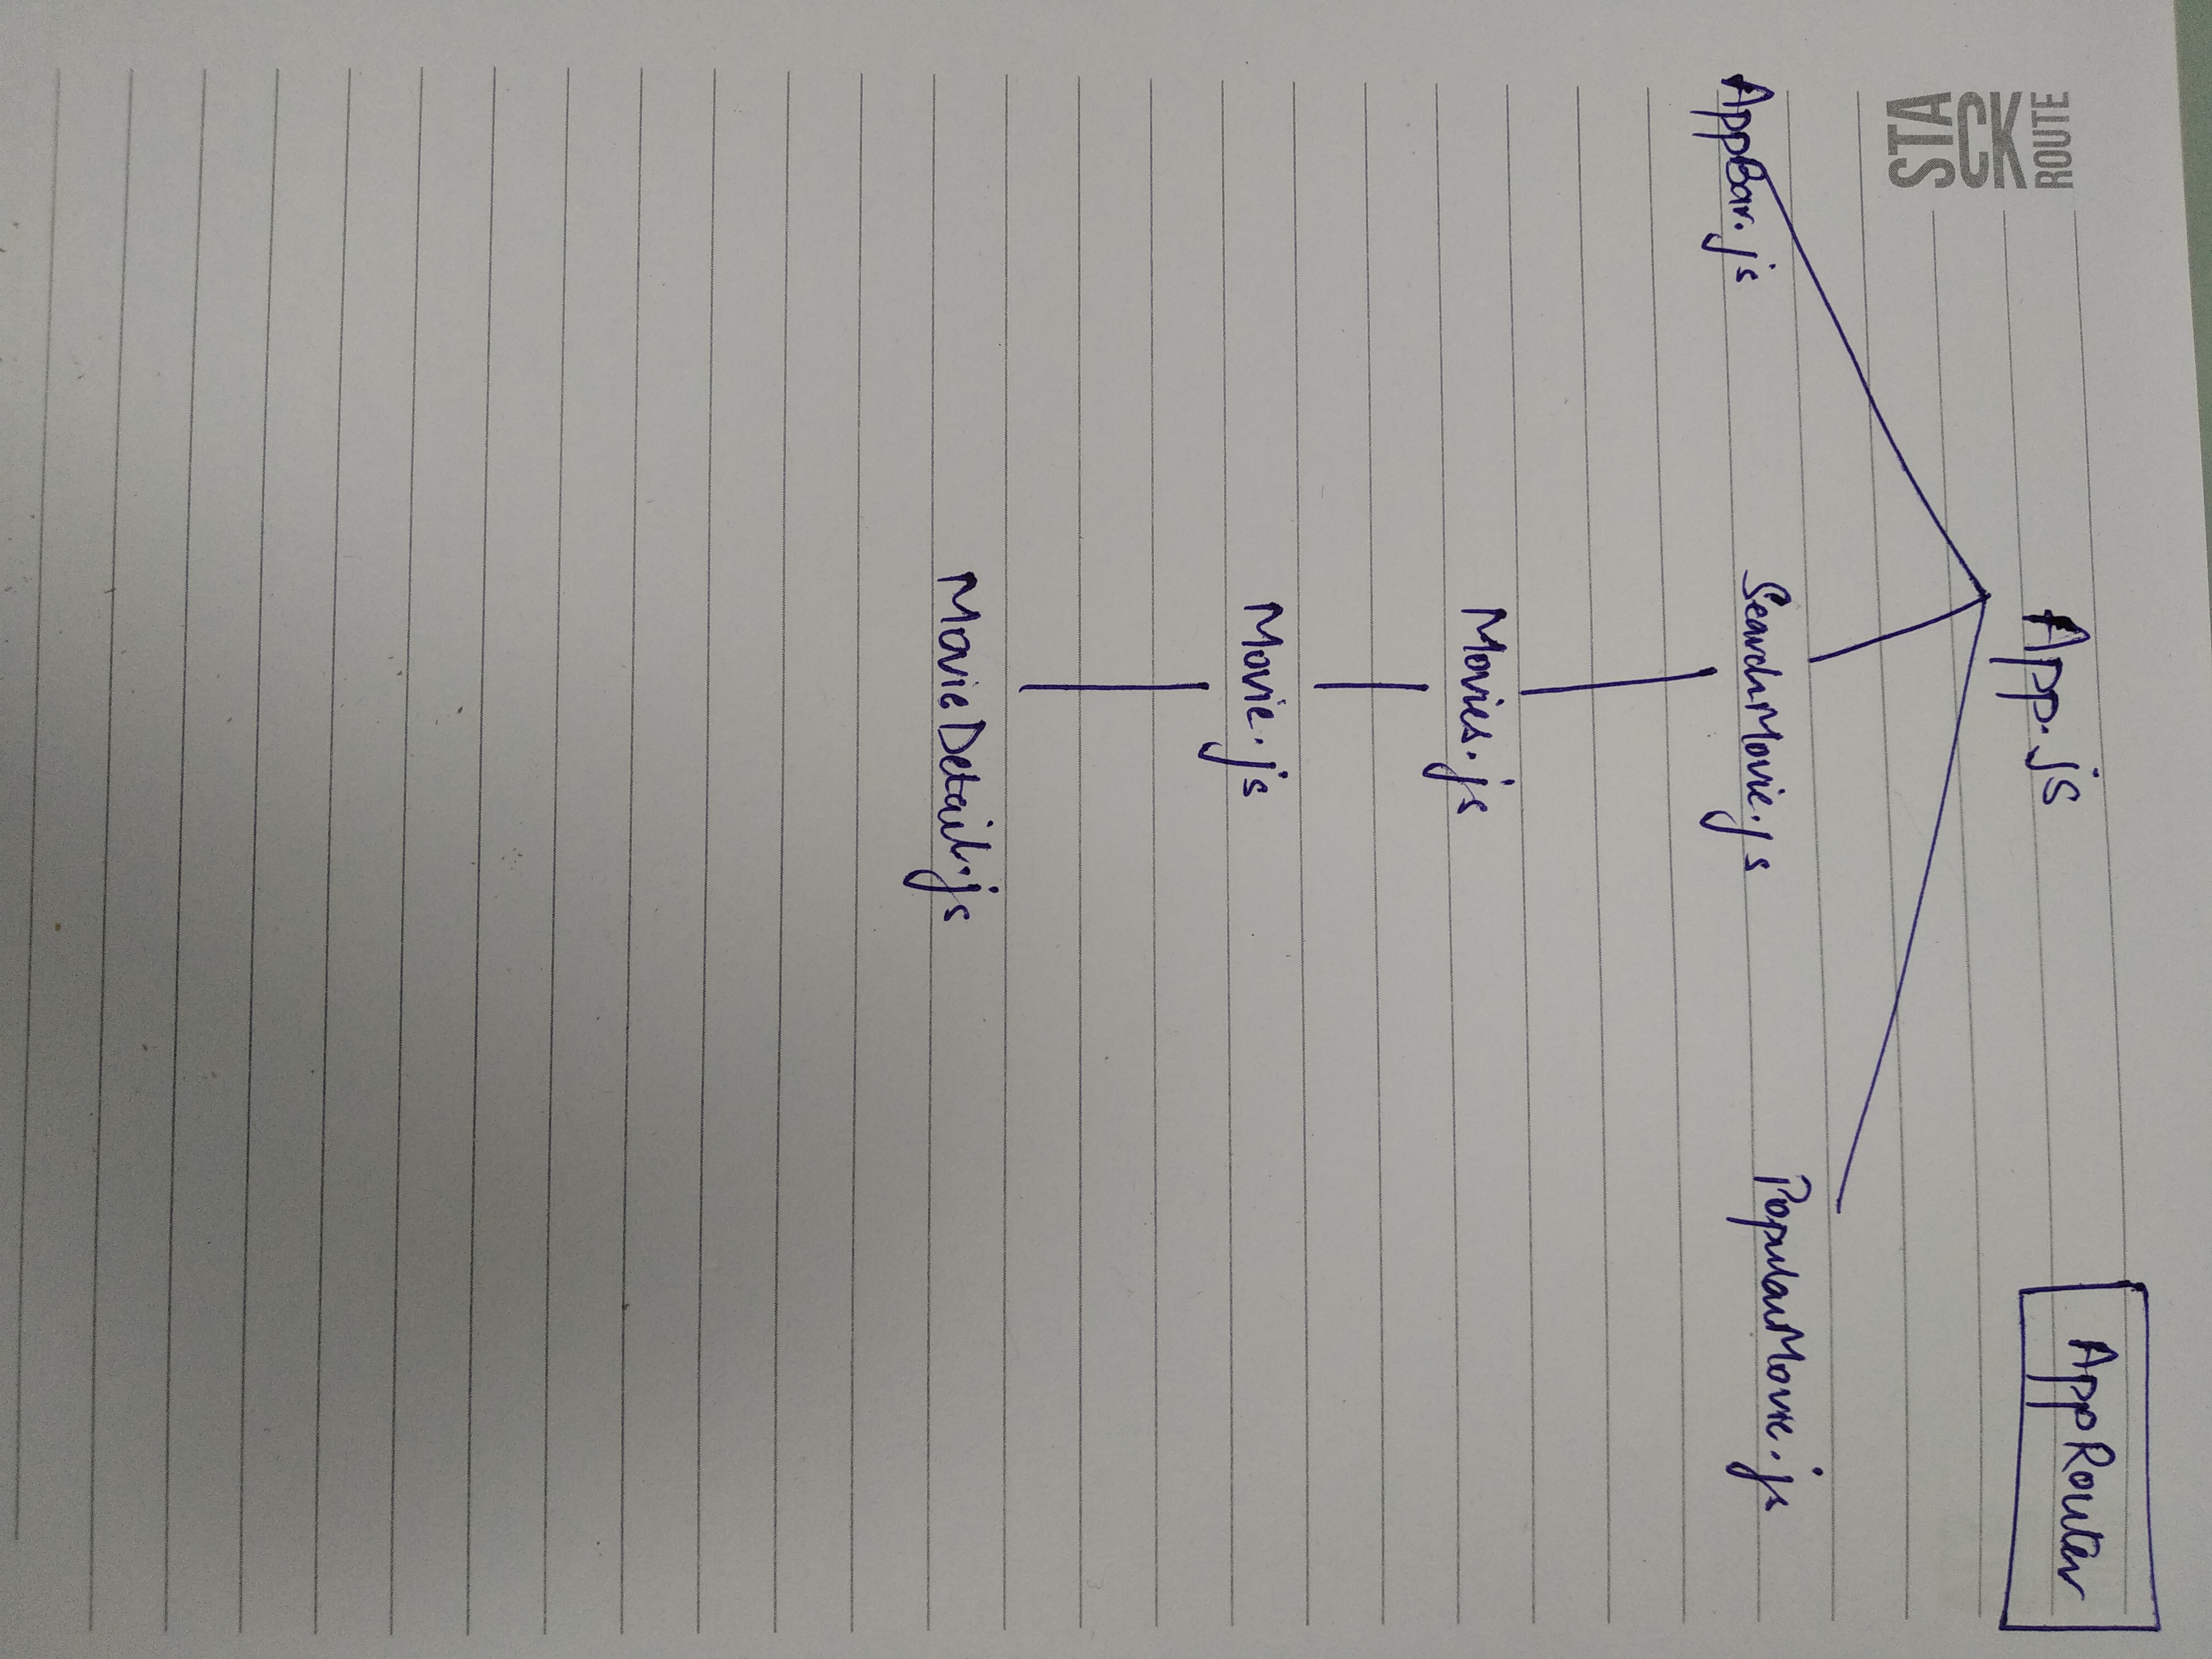 STA
CK
ROUTE
AppRouter
App.js
AppBar.js
SearchMovie.js
PopularMovie.js
Movies.js
Movie.js
MovieDetail.js